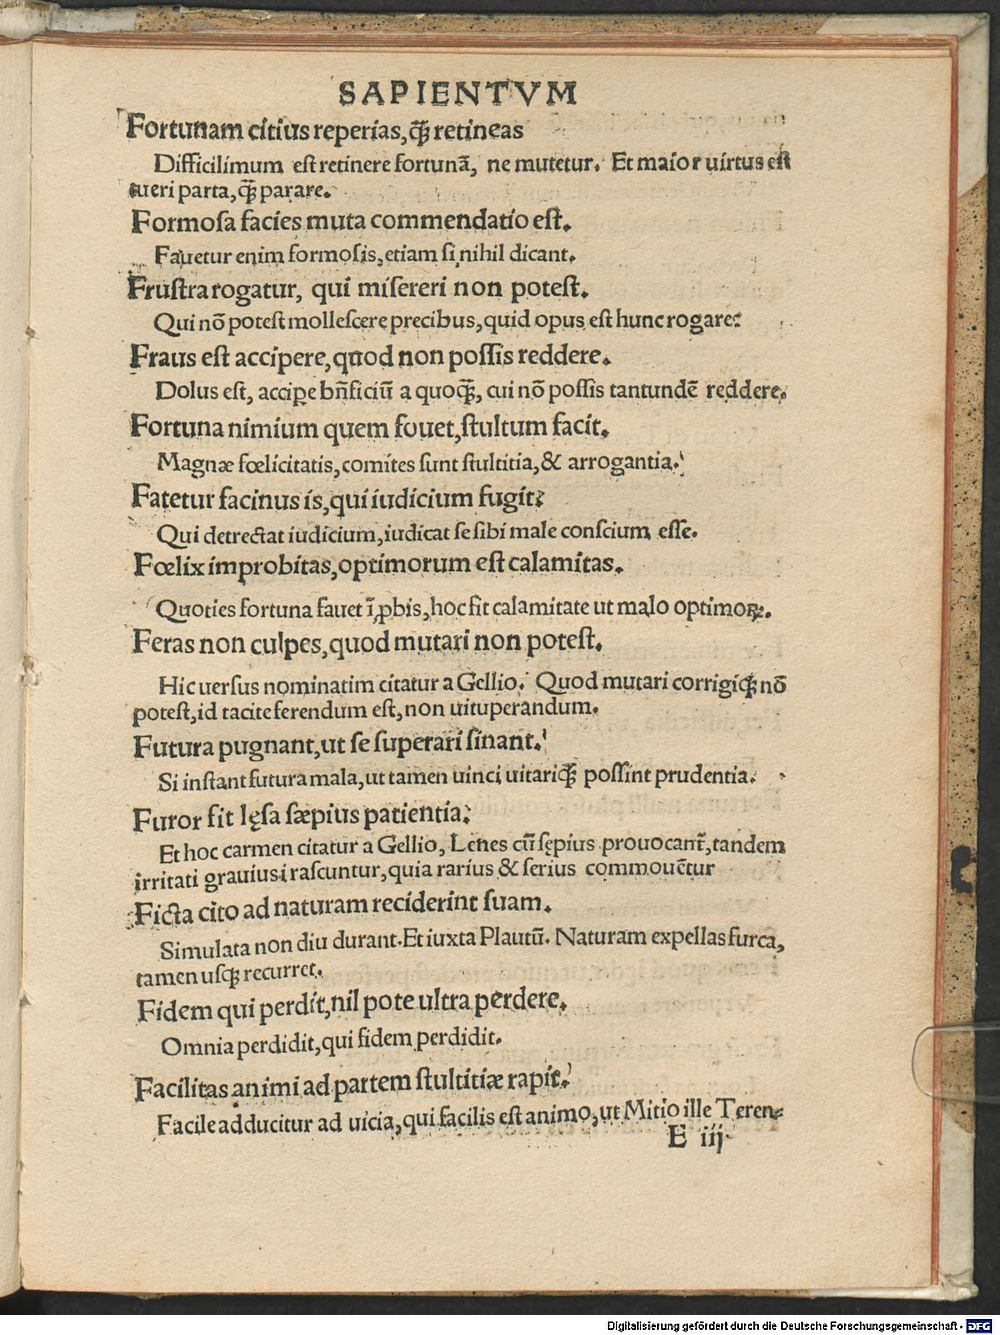 SAPIENTVM
Fortunam citius reperias, qꝫ retineas
Difficilimum est retinere fortunā, ne mutetur. Et maior uirtus est
tueri parta, qꝫ parare.
Formosa facies muta commendatio est.
Fauetur enim formosis, etiam si nihil dicant.
Frustra rogatur, qui misereri non potest.
Qui nō potest mollescere precibus, quid opus est hunc rogare?
Fraus est accipere, quod non possis reddere.
Dolus est, accipe bn̄ficiū a quoqꝫ, cui nō possis tantundē reddere.
Fortuna nimium quem fouet, stultum facit.
Magnæ fœlicitatis, comites sunt stultitia, & arrogantia.
Fatetur facinus is, qui iudicium fugit.
Qui detrectat iudicium, iudicat se sibi male conscium esse.
Fœlix improbitas, optimorum est calamitas.
Quoties fortuna fauet īꝓbis, hoc fit calamitate ut malo optimoꝝ.
Feras non culpes, quod mutari non potest.
Hic uersus nominatim citatur a Gellio. Quod mutari corrigiqꝫ nō
potest, id tacite ferendum est, non uituperandum.
Futura pugnant, ut se superari sinant.
Si instant futura mala, ut tamen uinci uitariqꝫ possint prudentia.
Furor fit lęsa sæpius patientia.
Et hoc carmen citatur a Gellio, Lenes cū sępius prouocant᷑, tandem
irritati grauius irascuntur, quia rarius & serius commouētur
Ficta cito ad naturam reciderint suam.
Simulata non diu durant. Et iuxta Plautū. Naturam expellas furca,
tamen usqꝫ recurret.
Fidem qui perdit, nil pote ultra perdere.
Omnia perdidit, qui fidem perdidit.
Facilitas animi ad partem stultitiæ rapit.
Facile adducitur ad uicia, qui facilis est animo, ut Mitio ille Teren-
E iij
Digitalisierung gefördert durch die Deutsche Forschungsgemeinschaft - DFG